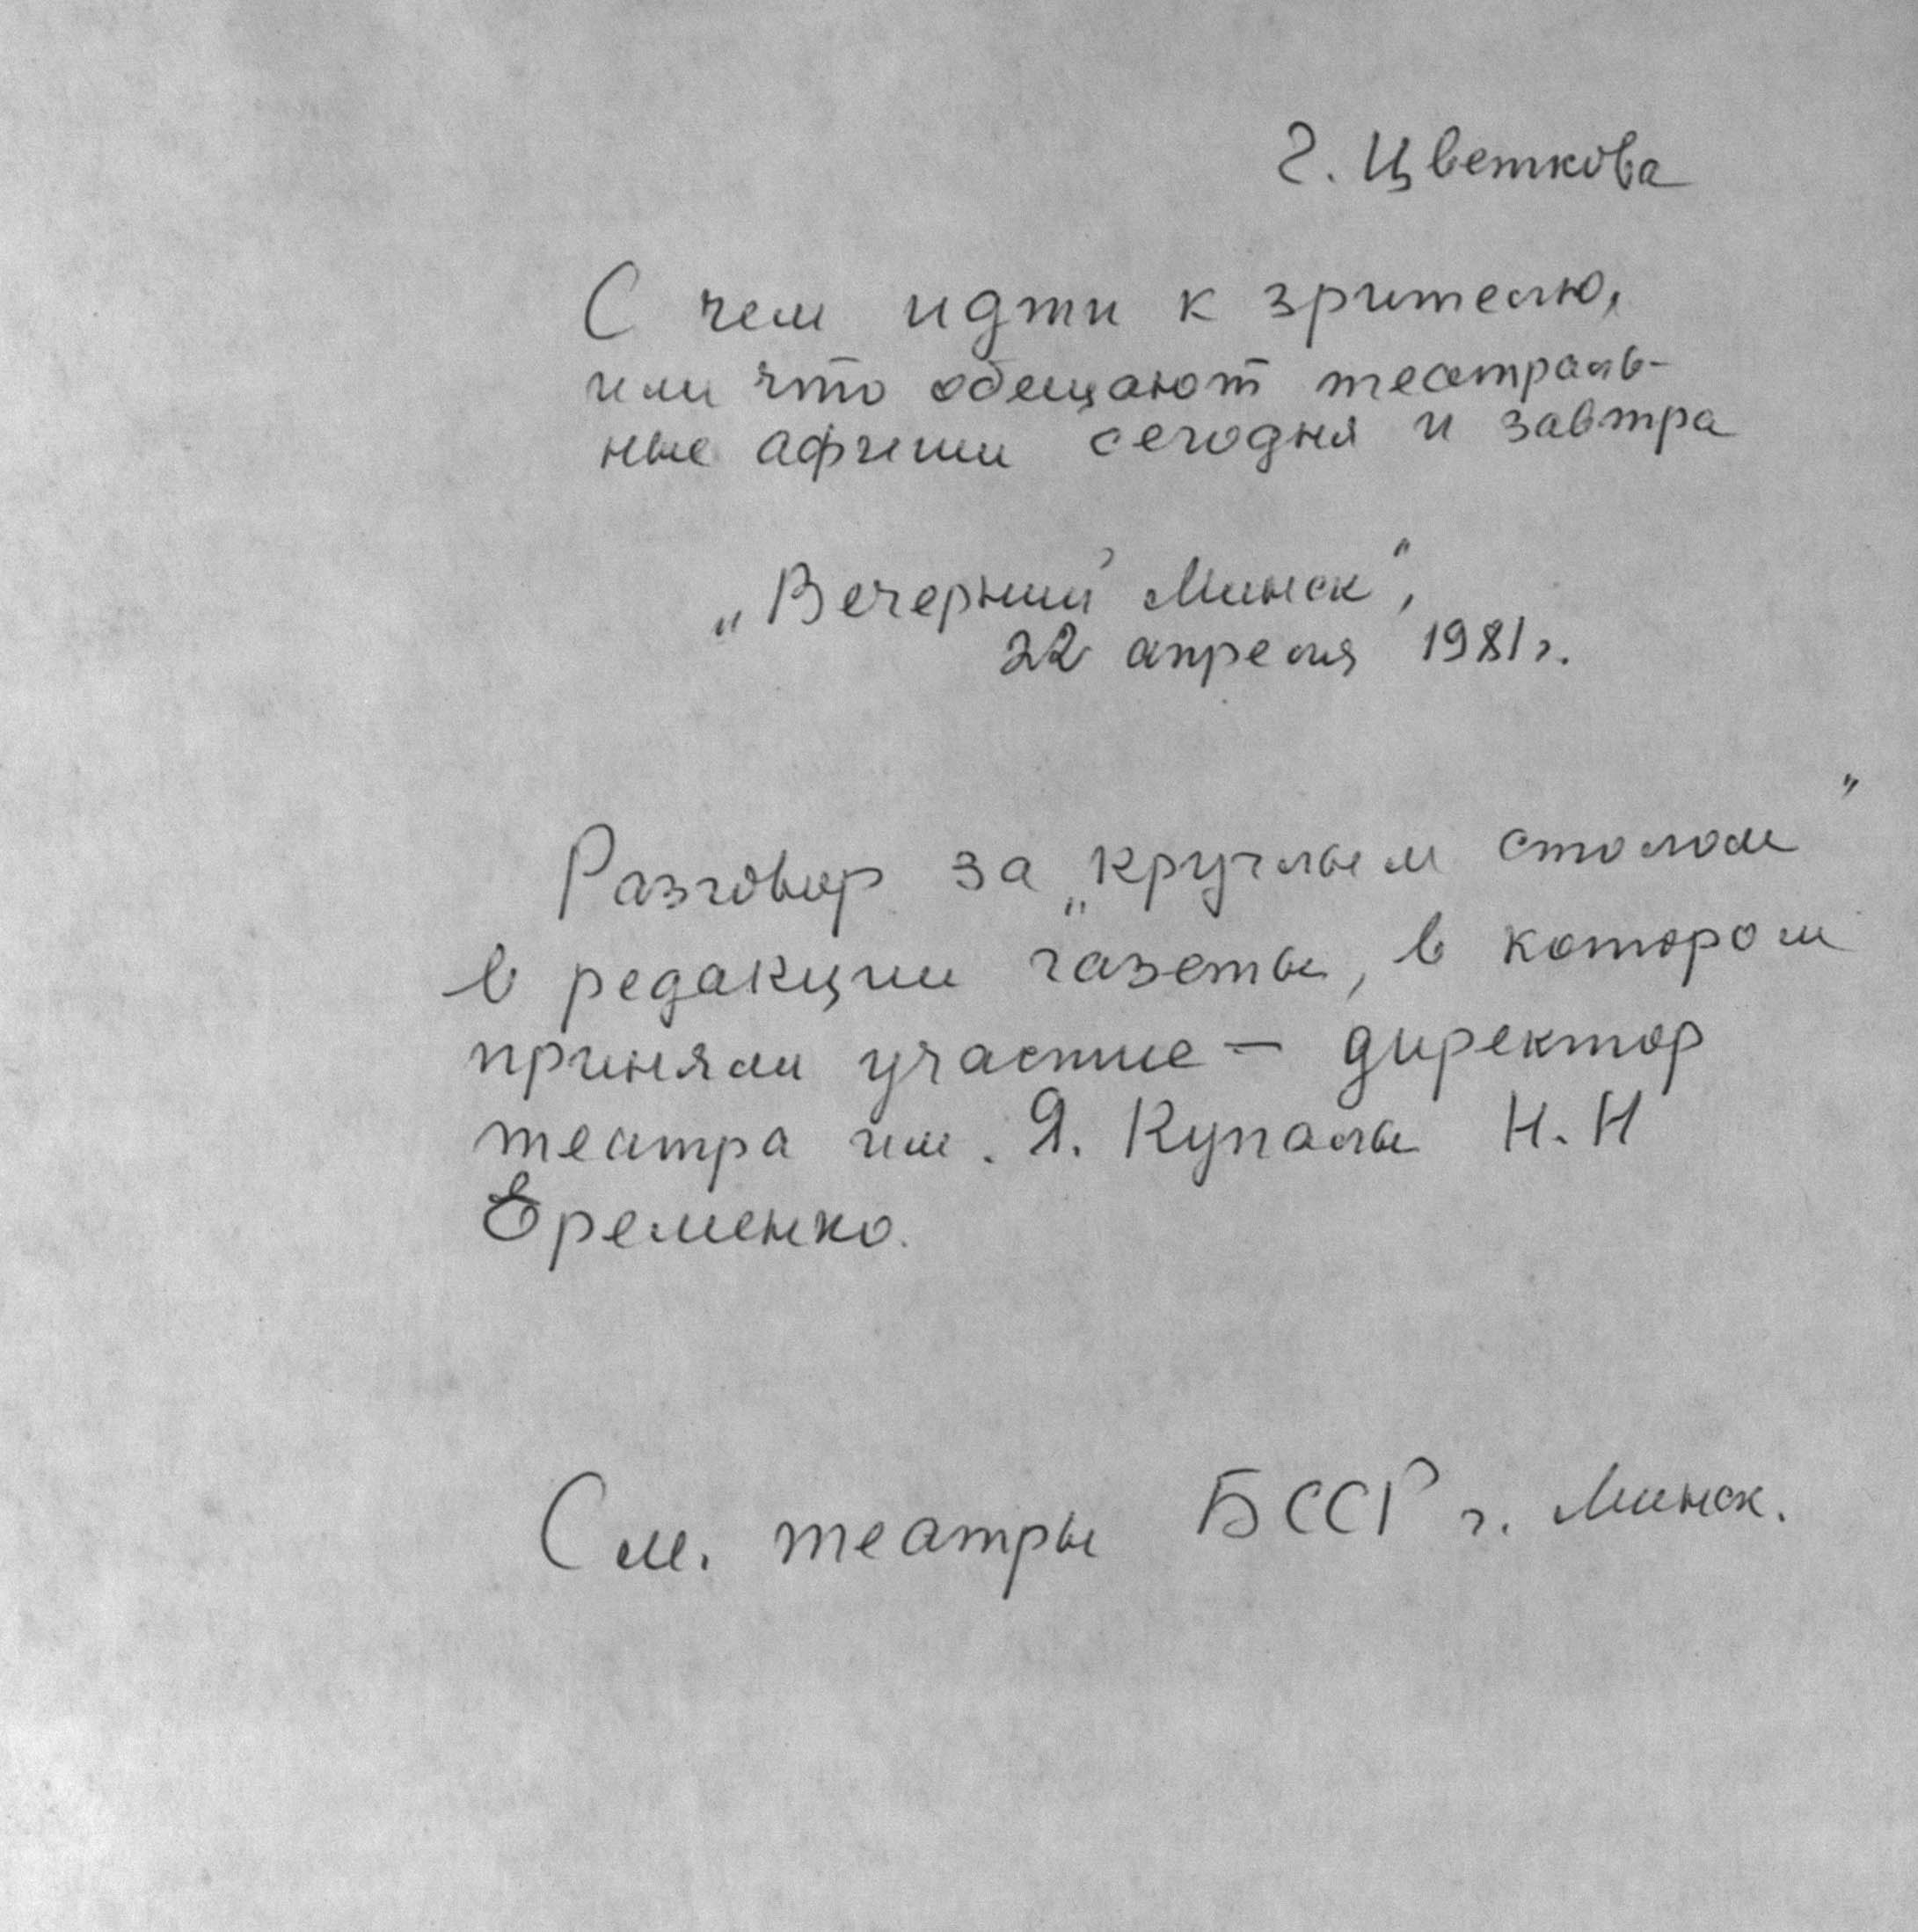 Г. Цветкова
С чем идти к зрителю,
или что обещают театраль-
ные афиши сегодня и завтра
„Вечерний Минск",
22 апреля 1981 г.
Разговор за „круглым столом"
в редакции газеты, в котором
приняли участие – директор
театра им. Я. Купалы Н. Н
Еременко.
См. театры БССР г. Минск.